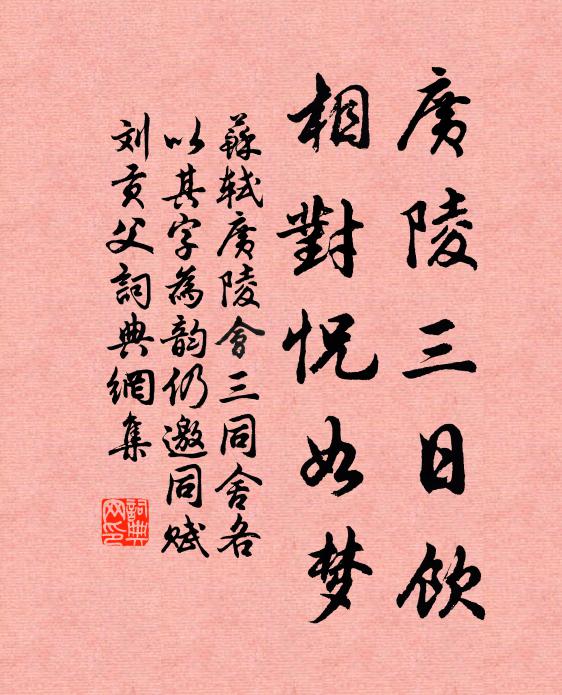 廣陵三日飲
相對怳如梦
蘇軾廣陵會三同舍各
以其字為韵仍邀同赋
刘贡父詞典網集
詞典
网印